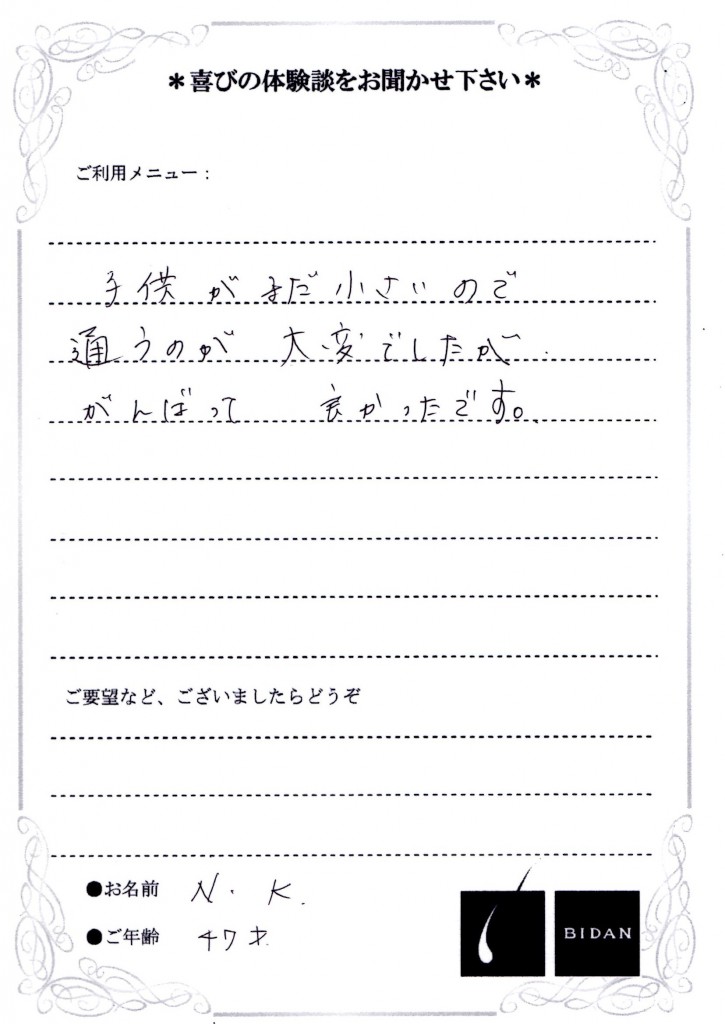 ＊喜びの体験談をお聞かせ下さい＊
ご利用メニュー：
子供がまだ小さいので
通うのが 大変でしたが
がんばって 良かったです。
ご要望など、ございましたらどうぞ
●お名前 N. K.
●ご年齢 47才
BIDAN